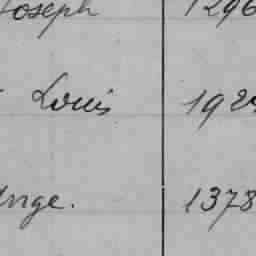 Joseph 1296
Louis 192
Ange. 1378